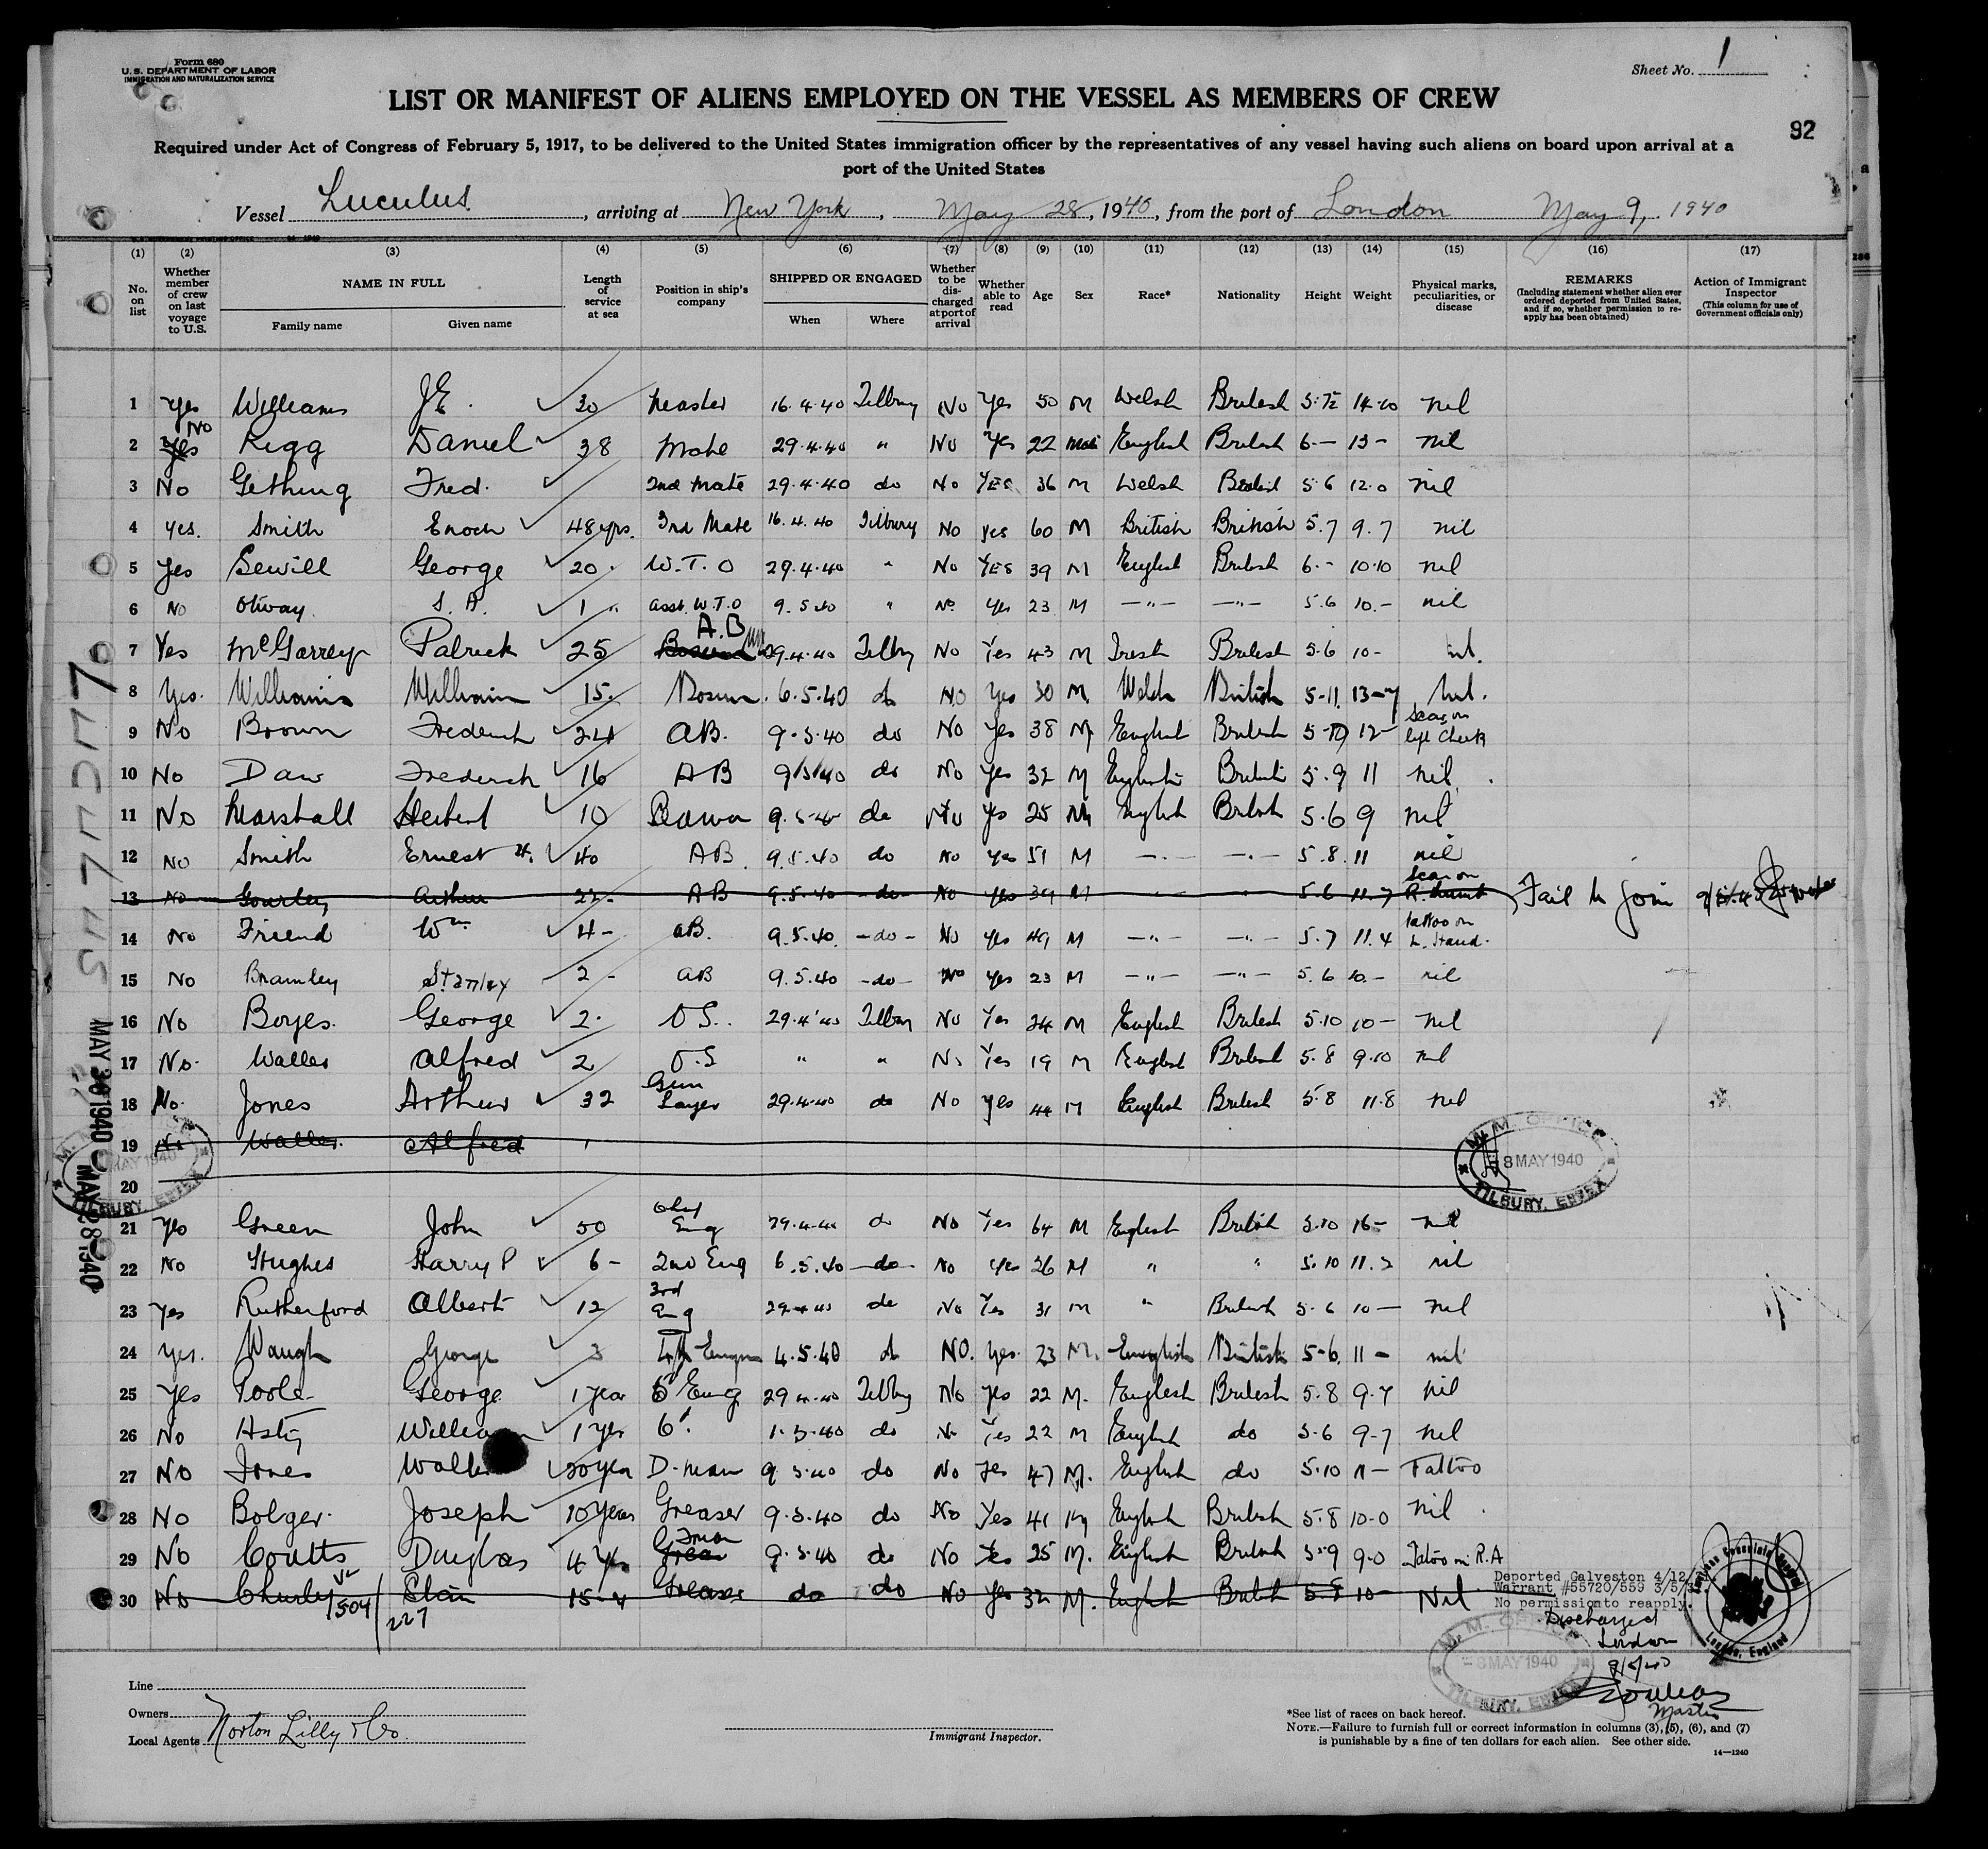 Form 680
U. S. DEPARTMENT OF LABOR
IMMIGRATION AND NATURALIZATION SERVICE
Sheet No. 1
LIST OR MANIFEST OF ALIENS EMPLOYED ON THE VESSEL AS MEMBERS OF CREW
92
Required under Act of Congress of February 5, 1917, to be delivered to the United States immigration officer by the representatives of any vessel having such aliens on board upon arrival at a
port of the United States
Vessel Luculus, arriving at New York, May 28, 1940, from the port of London May 9, 1940
(1) (2) (3) (4) (5) (6) (7) (8) (9) (10) (11) (12) (13) (14) (15) (16) (17)
No. on list
Whether member of crew on last voyage to U.S.
NAME IN FULL
Family name
Given name
Length of service at sea
Position in ship's company
SHIPPED OR ENGAGED
When
Where
Whether to be discharged at port of arrival
Whether able to read
Age
Sex
Race*
Nationality
Height
Weight
Physical marks, peculiarities, or disease
REMARKS
(Including statement whether alien ever ordered deported from United States, and if so, whether permission to re-apply has been obtained)
Action of Immigrant Inspector
(This column for use of Government officials only)
1 Yes Williams J E. 30 Master 16.4.40 Tilbury No Yes 50 M Welsh British 14.10 nil
2 Yes No Rigg Daniel 38 Mate 29.4.40 " No Yes 22 Male English British 6— 13— nil
3 No Gething Fred. 2nd Mate 29.4.40 do No YES 36 M Welsh British 5.6 12.0 nil
4 yes. Smith Enoch 48 yrs. 3rd Mate 16.4.40 Tilbury No yes 60 M British British 5.7 9.7 nil
5 Yes Bewill George 20 . W.T.O 29.4.40 " No YES 39 M English British 6.- 10.10 nil
6 No Otway S. A. 1 " asst. W.T.O 9.5.40 " No yes 23 M —"— —"— 5.6 10.- nil
7 Yes McGarrey Patrick 25 A.B 29.4.40 Tilby No Yes 43 M Irish British 5.6 10- nil.
8 Yes. Williams William 15. Bosun. 6.5.40 do No Yes 30 M. Welsh British 5-11. 13-7 nil.
9 No Brown Frederick 24 AB. 9.5.40 do No Yes 38 M English British 12- Scar on left Cheek
10 No Daw Frederick 16 AB 9/5/40 do No Yes 32 M English British 5.9 11 nil
11 No Marshall Herbert 10 9.5.40 do No Yes 25 M English British 5.6 9 nil
12 No Smith Ernest H. 40 AB. 9.5.40 do No Yes 51 M —"— —"— 5.8. 11 nil
13 No Gourley Arthur 22- AB 9.5.40 -do- No Yes 39 M " " 5.6 11.7 Scar on R. Fail to join
14 No Friend Wm 4- AB. 9.5.40. -do- No yes 49 M —"— —"— 5.7 11.4 tattoo on L. Hand.
15 No Bramley Stanley 2- AB 9.5.40 -do- No yes 23 M —"— —"— 5.6 10.- nil
16 No Boyes. George 2. O S. 29.4.40 Tilbury No Yes 24 M English British 5.10 10- nil
17 No. Waller Alfred 2 O.S " " No Yes 19 M English British 5.8 9.10 nil
18 No. Jones Arthur 32 Gun Layer 29.4.40 do No yes 44 M English British 5.8 11.8 nil
19 No Waller. Alfred
20
M. M. OFFICE
8 MAY 1940
TILBURY, ESSEX
21 Yes Green John 50 Chief Eng 29.4.40 do No Yes 64 M English British 5.10 16- nil
22 No Hughes Harry P 6- 2nd Eng 6.5.40 -do- No yes 26 M " " 5.10 nil
23 Yes Rutherford Albert 12 3rd Eng 29.4.40 do No Yes 31 M " British 5.6 10- nil
24 Yes. Waugh George 3 4th Engr 4.5.40 do NO. Yes. 23 M. English British 5-6. 11- nil
25 Yes Poole George 1 year 5 Eng 29.4.40 Tilby No yes 22 M. English British 5.8 9.7 nil
26 No William 1 yr 6. 1.5.40 do No Yes 22 M English do 5.6 9-7 nil
27 No Jones 20 year D. man 9.5.40 do No Yes 47 M. English do 5.10 11- Tattoo
28 No Bolger. Joseph 10 years Greaser 9.5.40 do No Yes 41 M English British 5.8 10-0 nil
29 No Coutts Douglas 4 Yrs 9.5.40 do No Yes 25 M. English British 5.9 9.0 Tatoo on R.A
30 No do do No Yes 32 M. English British 10- Nil
504
227
Deported Galveston 4/12/
Warrant #55720/559 3/5/3
No permission to reapply.
Discharged
London
9/5/40
Master
American Consulate General
London, England
M. M. OFFICE
8 MAY 1940
TILBURY, ESSEX
MAY 30 1940
MAY 28 1940
Line
Owners
Local Agents Norton Lilly & Co.
Immigrant Inspector.
*See list of races on back hereof.
NOTE.—Failure to furnish full or correct information in columns (3), (5), (6), and (7)
is punishable by a fine of ten dollars for each alien. See other side.
14—1240